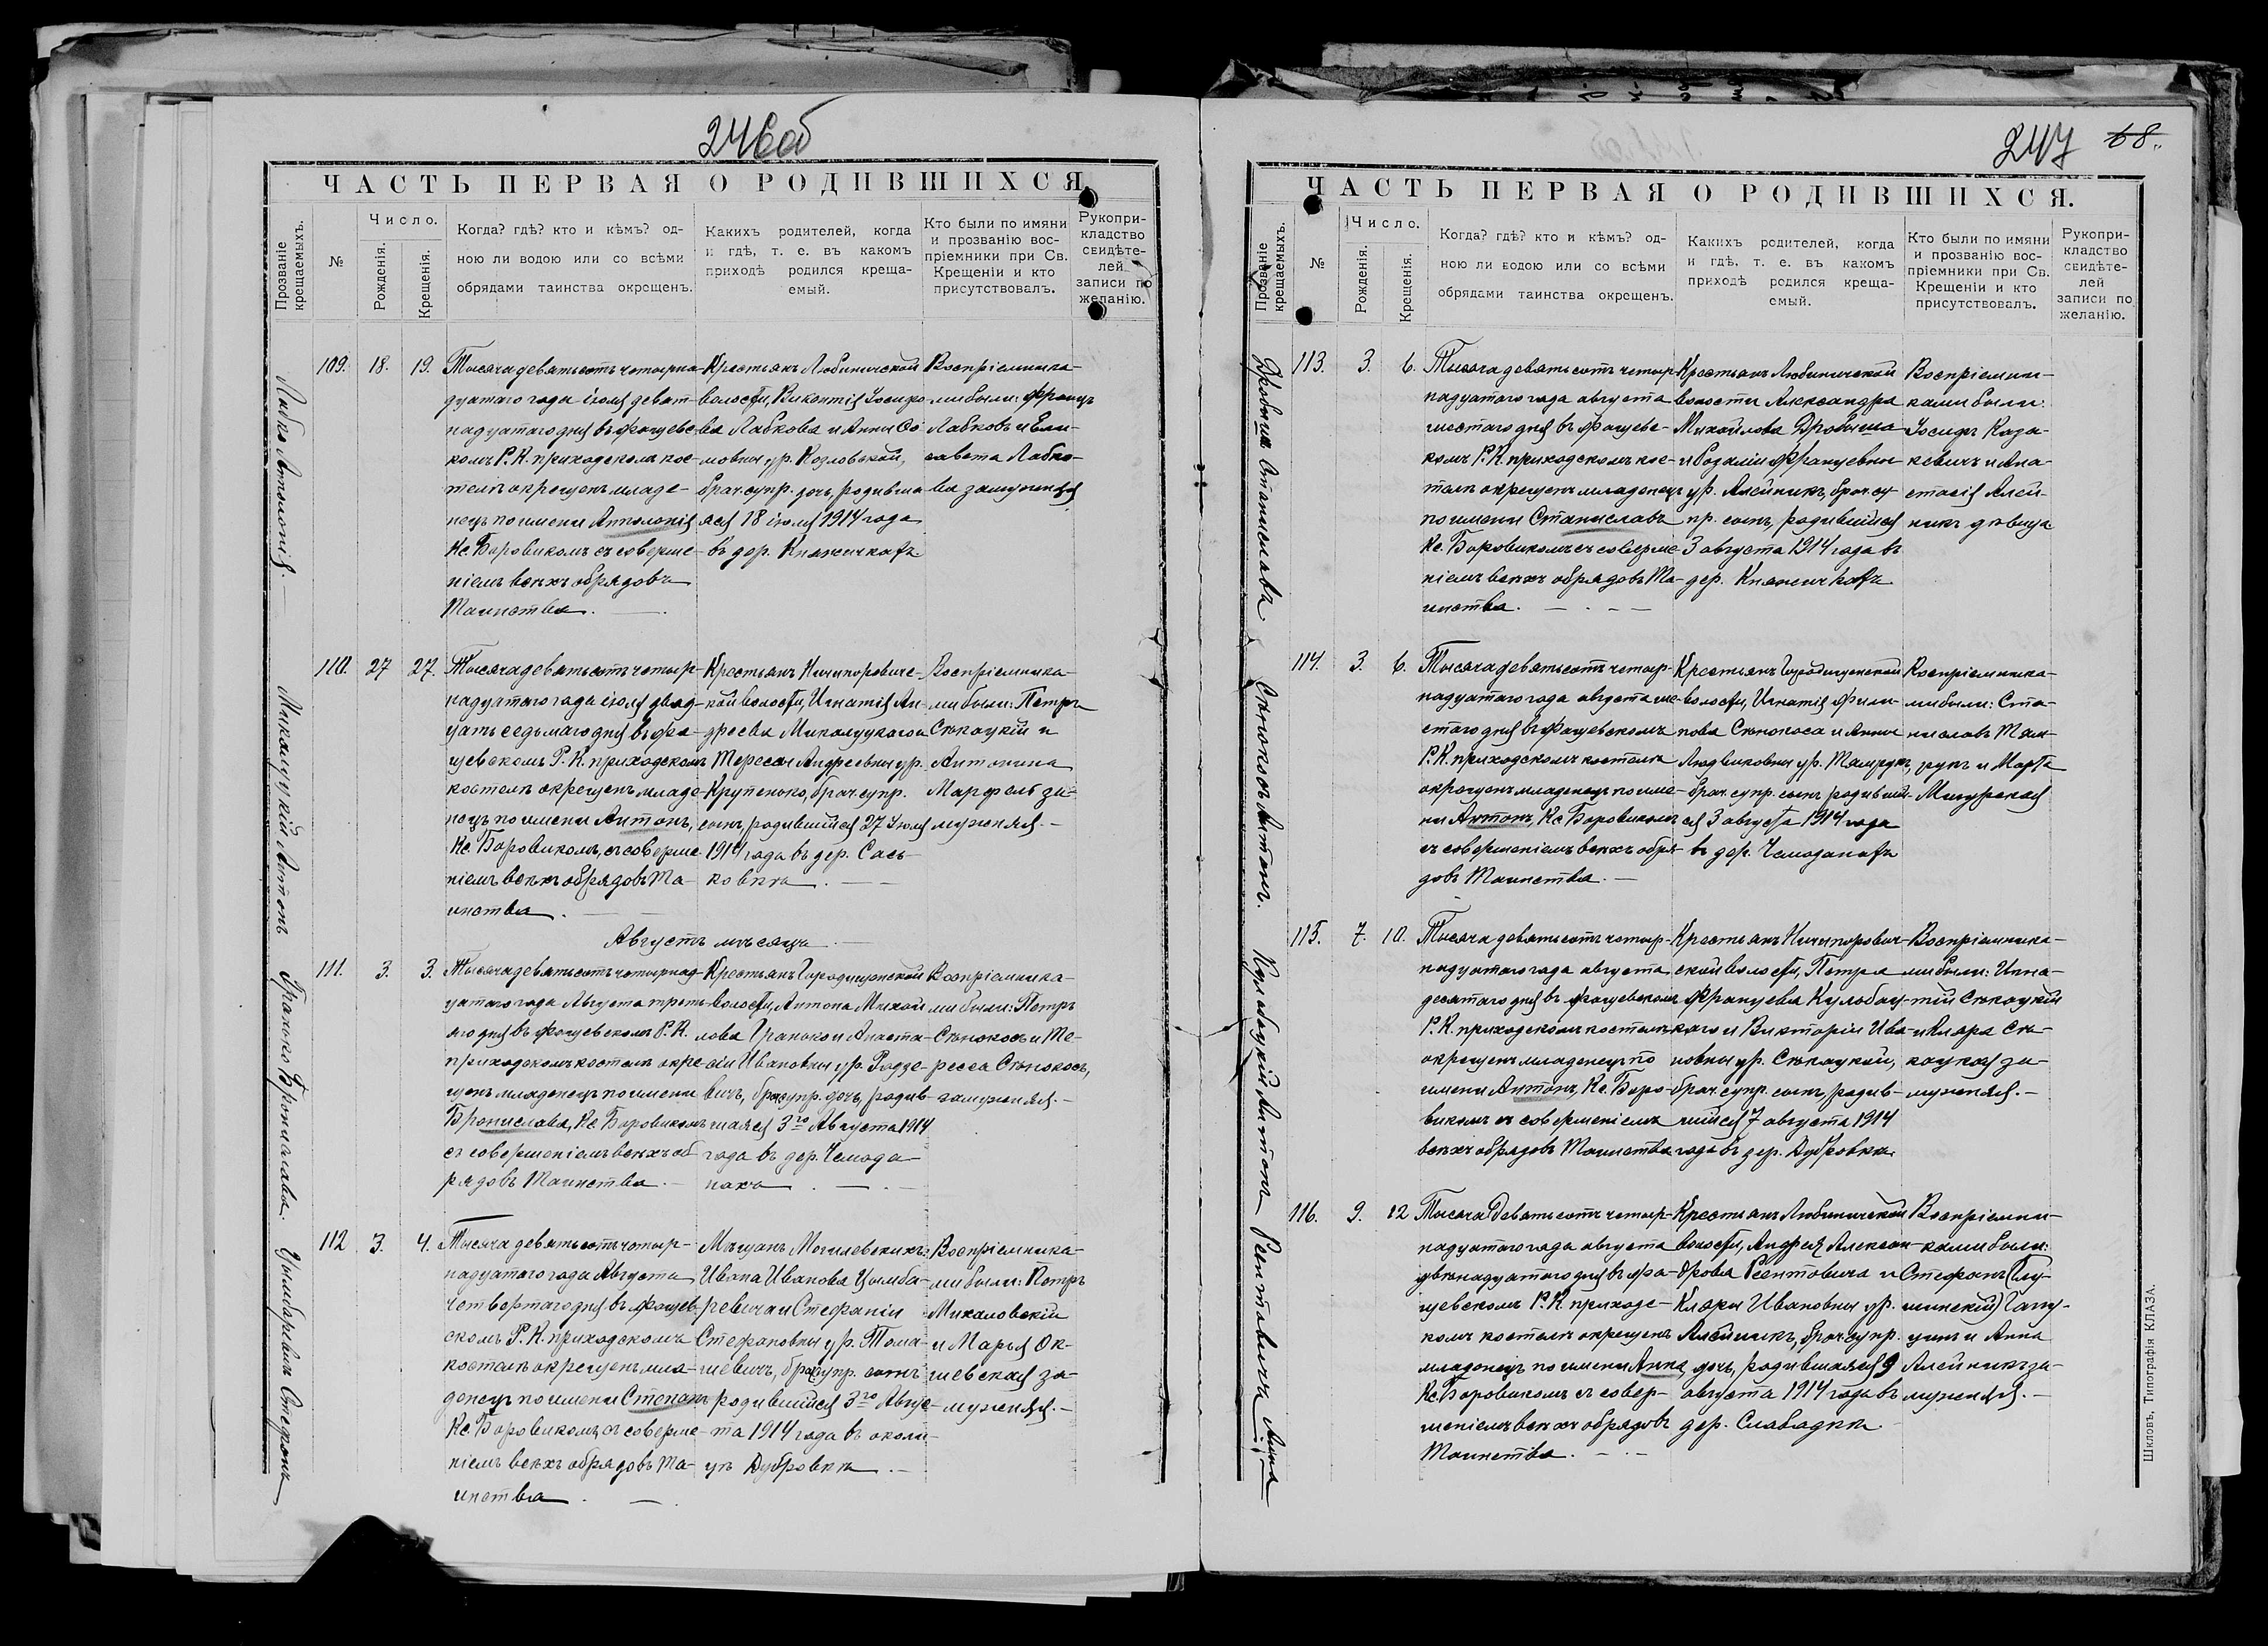 246об
ЧАСТЬ ПЕРВАЯ О РОДИВШИХСЯ
Прозваніе крещаемыхъ.
№
Число.
Рожденія.
Крещенія.
Когда? гдѣ? кто и кѣмъ? од-
ною ли водою или со всѣми
обрядами таинства окрещенъ.
Какихъ родителей, когда
и гдѣ, т. е. въ какомъ
приходѣ родился креща-
емый.
Кто были по имяни
и прозванію вос-
пріемники при Св.
Крещеніи и кто
присутствовалъ.
Рукопри-
кладство
свидѣте-
лей
записи по
желанію.
109. 18. 19.
Тысяча девятьсотъ четырна-
дцатаго года іюля девят-
надцатаго дня въ Фащевс-
комъ Р.К. приходскомъ кос-
телѣ окрещенъ младе-
нецъ по имени Апполонія
Кс. Боровикомъ съ соверше-
ніемъ всѣхъ обрядовъ
Таинства.
Крестьянъ Любиничской
волости, Викентія Іосифо-
ва Лабкова и Анны Со
мовны ур. Козловской,
брач. супр. дочь, родивша-
яся 18 іюля 1914 года
въ дер. Княжичкахъ
Воспріемника-
ми были: Францъ
Лабковъ и Ели-
савета Лабко-
ва замужняя
110. 27 27.
Микалуцкій Антонъ
Тысяча девятьсотъ четыр-
надцатаго года іюля двад-
цать седьмаго дня въ Фа-
щевскомъ Р.К. приходскомъ
костелѣ окрещенъ младе-
нецъ по имени Антонъ,
Кс. Боровикомъ, съ соверше-
ніемъ всѣхъ обрядовъ Та-
инства.
Крестьянъ Ничипорович-
кой волости, Игнатія Ан-
дреева Миколуцкаго и
Тересы Андреевны ур.
Крупенько, брач. супр.
сынъ, родившийся 27 Іюля
1914 года въ дер. Сась-
ковкѣ.
Воспріемника-
ми были: Петръ
Сѣкацкій и
Антонина
Марфель за-
мужняя.
Августъ мѣсяцъ
111. 3. 3.
Гранько Бронислава.
Тысяча девятьсотъ четырнад-
цатаго года Августа треть-
яго дня въ Фащевскомъ Р.К.
приходскомъ костелѣ окре-
щенъ младенецъ по имени
Бронислава, Кс. Боровикомъ
съ совершеніемъ всѣхъ об
рядовъ Таинства.
Крестьянъ Городищенской
волости, Антона Михай
лова Гранько и Анаста-
сіи Ивановны ур. Радзе-
вичъ, брач. супр. дочь, родив-
шаяся 3го Августа 1914
года въ дер. Чемода-
нахъ.
Воспріемника-
ми были: Петръ
Сѣнокосъ и Те-
ресса Сѣнокосъ,
замужняя.
112 3. 4.
Цымбревичъ Стефанъ
Тысяча девятьсотъ четыр-
надцатаго года Августа
четвертаго дня въ Фащев-
скомъ Р.К. приходскомъ
костелѣ окрещенъ мла-
денецъ по имени Степанъ
Кс. Боровикомъ, съ соверше-
ніемъ всѣхъ обрядовъ Та-
инства.
Мѣщанъ Могилевскихъ:
Ивана Иванова Цымба-
ревича и Стефаніи
Стефановны ур. Тома-
шевичъ, брач. супр. сынъ
родившийся 3го Авгус-
та 1914 года въ околи-
цѣ Дубровкѣ.
Воспріемника-
ми были: Петръ
Михаловскій
и Марья Ок-
шевская за-
мужняя.
247 68
ЧАСТЬ ПЕРВАЯ О РОДИВШИХСЯ.
Прозваніе крещаемыхъ.
№
Число.
Рожденія.
Крещенія.
Когда? гдѣ? кто и кѣмъ? од-
ною ли водою или со всѣми
обрядами таинства окрещенъ.
Какихъ родителей, когда
и гдѣ, т. е. въ какомъ
приходѣ родился креща-
емый.
Кто были по имяни
и прозванію вос-
пріемники при Св.
Крещеніи и кто
присутствовалъ.
Рукопри-
кладство
свидѣте-
лей
записи по
желанію.
113. 3. 6.
Дробышъ Станиславъ
Тысяча девятьсотъ четыр-
надцатаго года августа
шестаго дня въ Фащевс-
комъ Р.К. приходскомъ кос-
телѣ окрещенъ младенецъ
по имени Станиславъ
Кс. Боровикомъ съ соверше-
ніемъ всѣхъ обрядовъ Та-
инства.
Крестьянъ Любиничской
волости Александра
Михайлова Дробыша
и Розаліи Францевны
ур. Алейникъ, брач. су
пр. сынъ, родившийся
3 августа 1914 года въ
дер. Княжичкахъ
Воспріемни-
ками были:
Іосифъ Каза-
кевичъ и Ана-
стасія Алей-
никъ дѣвица
114. 3. 6.
Сѣнокосъ Антонъ.
Тысяча девятьсотъ четыр-
надцатаго года августа ше-
стаго дня въ Фащевскомъ
Р.К. приходскомъ костелѣ
окрещенъ младенецъ по име-
ни Антонъ, Кс. Боровикомъ
съ совершеніемъ всѣхъ обря-
довъ Таинства.
Крестьянъ Городищенской
волости, Игнатія Фили-
пова Сѣнокоса и Анны
Людвиковны ур. Тамрукъ,
брач. супр. сынъ, родивший-
ся 3 августа 1914 года
въ дер. Чемоданахъ
Воспріемника-
ми были: Ста-
ниславъ Там-
рукъ и Марта
Мигурская
115. 7. 10.
Кулабуцкій Антонъ
Тысяча девятьсотъ четыр-
надцатаго года августа
десятаго дня въ Фащевскомъ
Р.К. приходскомъ костелѣ
окрещенъ младенецъ по
имени Антонъ, Кс. Боро-
викомъ съ совершеніемъ
всѣхъ обрядовъ Таинства
Крестьянъ Ничипорович-
ской волости, Петра
Францева Кулобац-
каго и Викторіи Ива-
новны ур. Сѣкацкой,
брач. супр. сынъ, родив-
шийся 7 августа 1914
года въ дер. Дубровкѣ.
Воспріемника-
ми были: Игна-
тій Сѣкацкій
и Клара Сѣ-
кацкая за-
мужняя.
116. 9. 12
Реентовичъ Анна
Тысяча девятьсотъ четыр-
надцатаго года августа
двѣнадцатаго дня въ Фа-
щевскомъ Р.К. приходс-
комъ костелѣ окрещенъ
младенецъ по имени Анна
Кс. Боровикомъ съ совер-
шеніемъ всѣхъ обрядовъ
Таинства.
Крестьянъ Любиничской
волости, Андрея Алексан-
дрова Реентовича и
Клары Ивановны ур.
Алейникъ, брач. супр.
дочь, родившаяся 9
августа 1914 года въ
дер. Слабадкѣ.
Воспріемни-
ками были:
Стефанъ
и Анна
Алейникъ за-
мужняя.
Шкловъ, Типографія КЛАЗА.